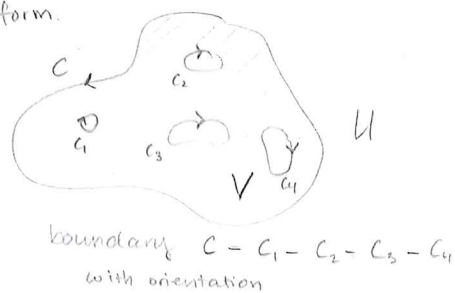 form.
C
C₂
C₁
C₃
U
C₄
V
boundary C - C₁ - C₂ - C₃ - C₄
with orientation